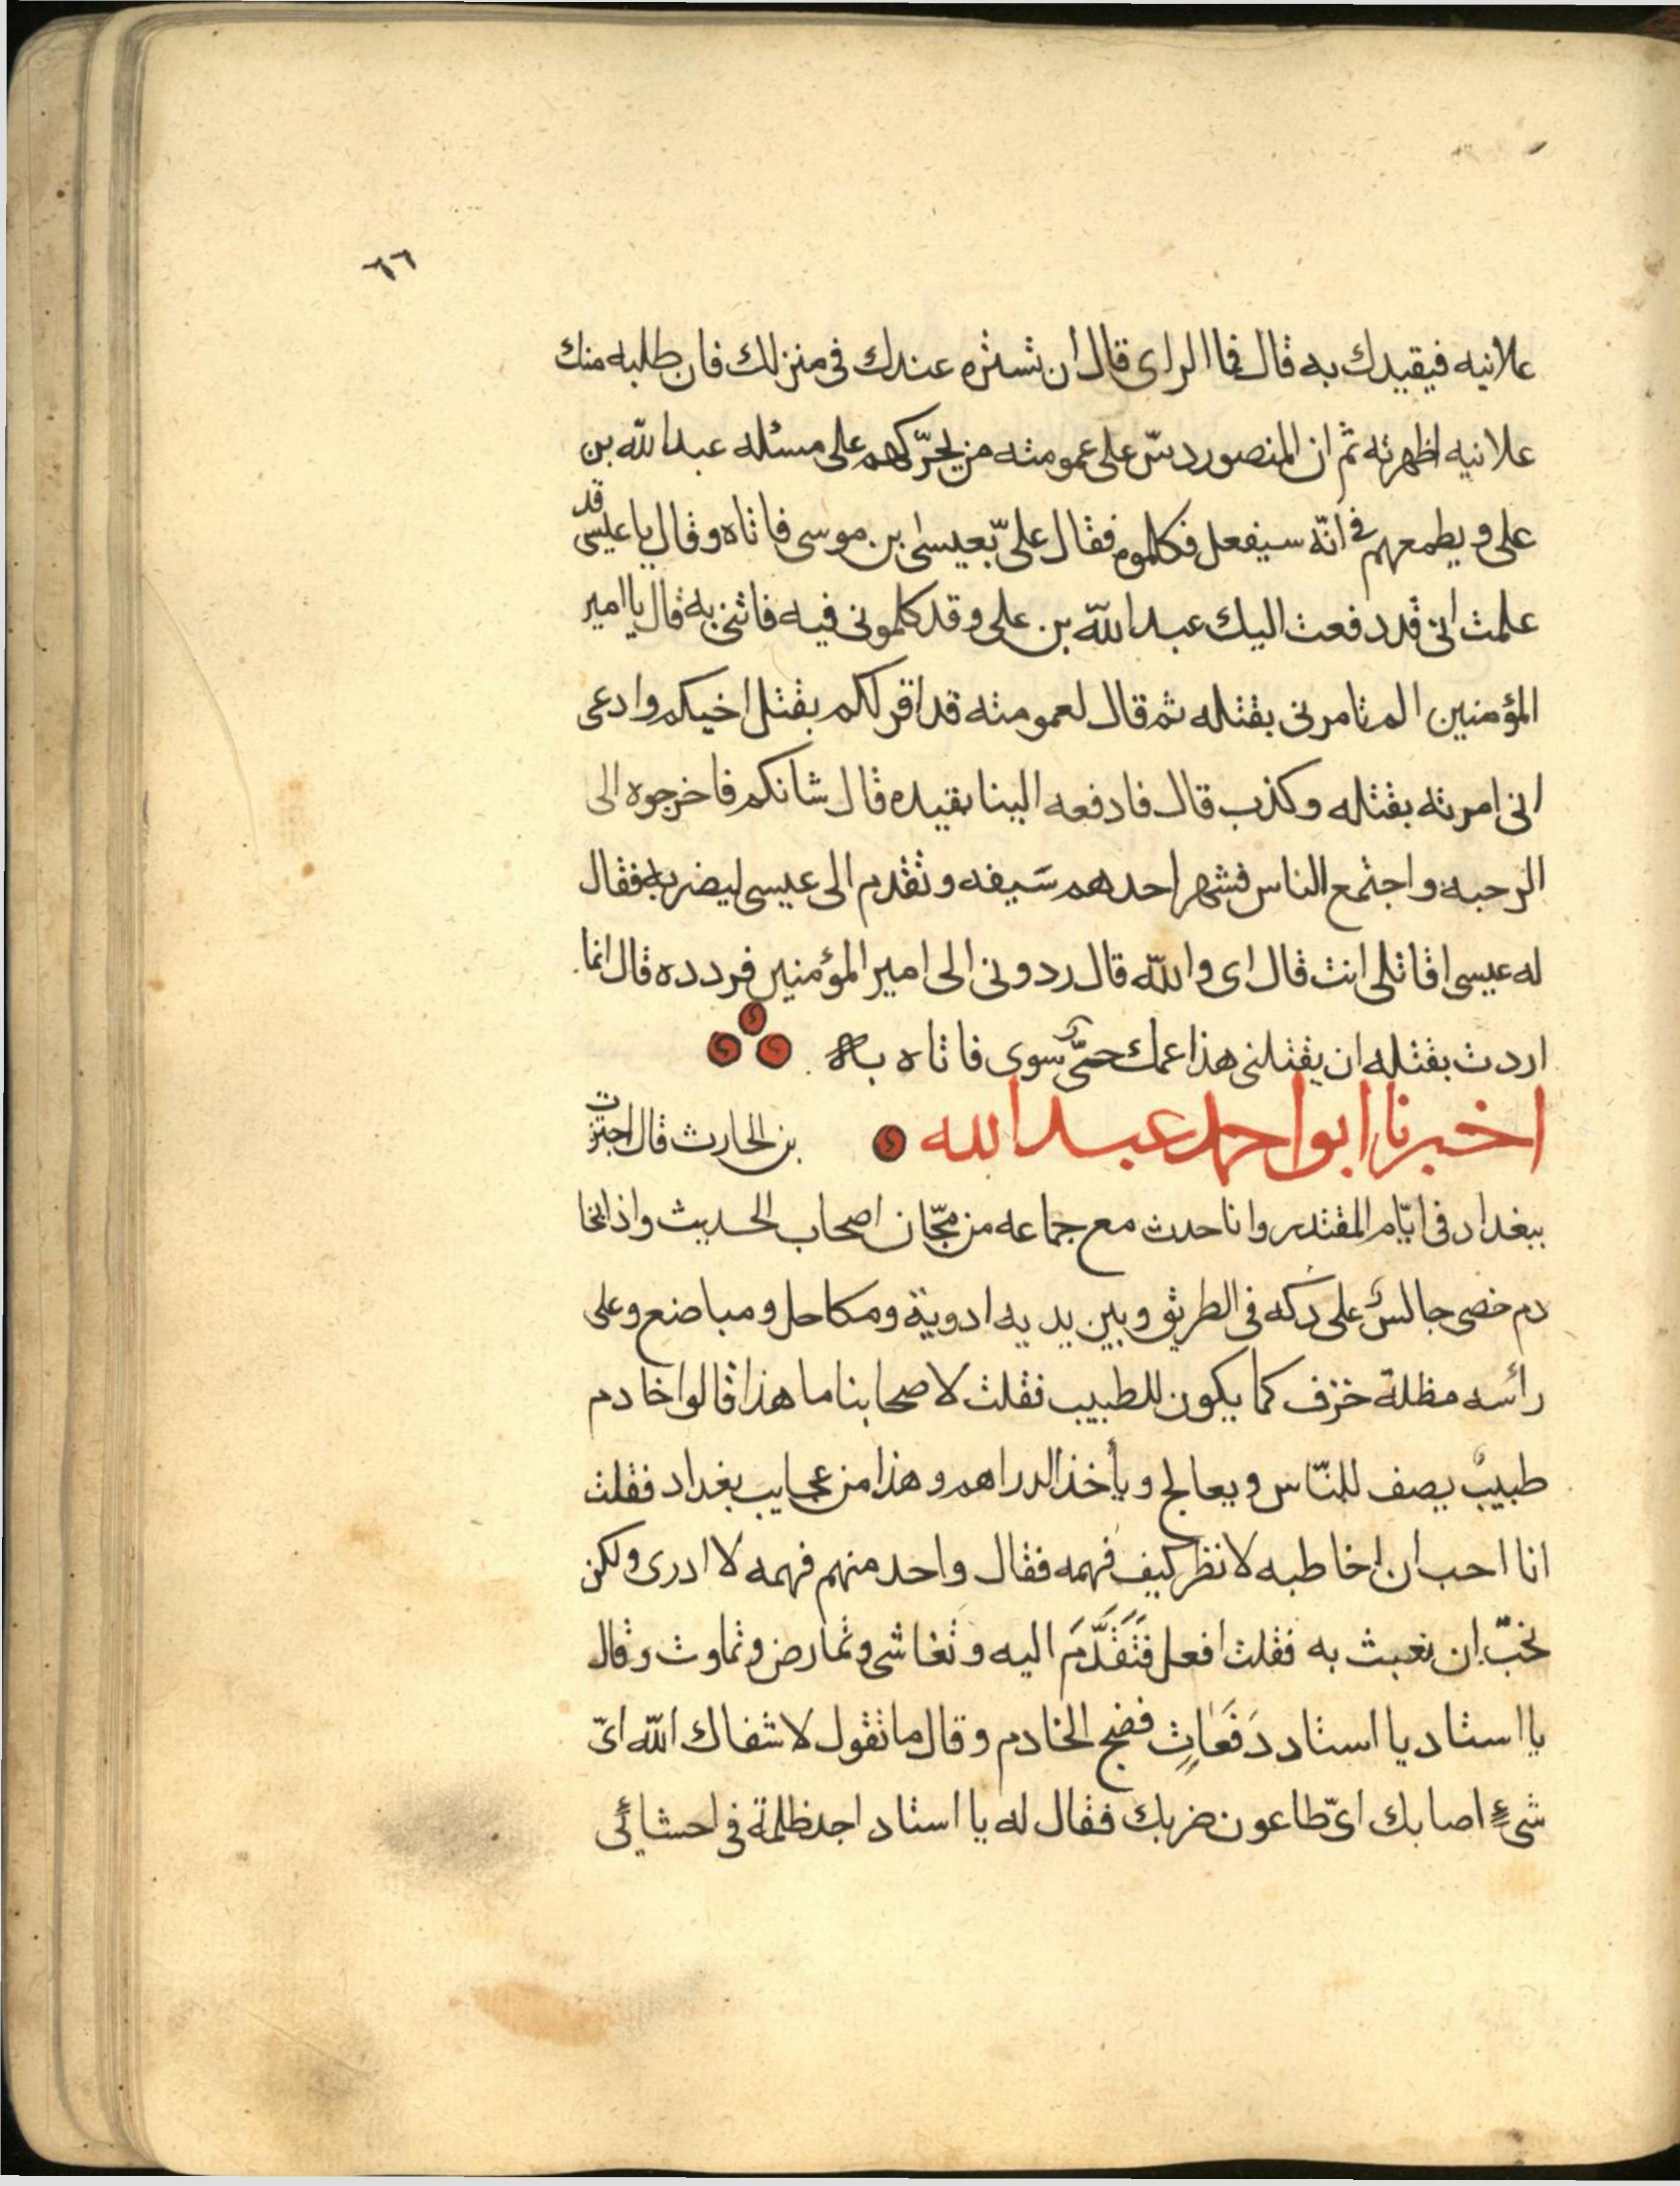 ٦٦
علانيه فيقيدك به قال فما الراى قال ان تستره عندك فى منزلك فان طلبه منك
علانيه اظهرته ثم ان المنصور دسّ على عمومته من يحرّكهم على مسئله عبد الله بن
على ويطمعهم فى انّه سيفعل فكلموه فقال علىّ بعيسى بن موسى فاتاه وقال يا عيسى قد
علمت انى قد دفعت اليك عبد الله بن على وقد كلمونى فيه فاتنى به قال يا امير
المؤمنين الم تامرنى بقتله ثم قال لعمومته قد اقر لكم بقتل اخيكم وادعى
انى امرته بقتله وكذب قال فادفعه الينا بقيده قال شانكم فاخرجوه الى
الرحبه واجتمع الناس فشهر احدهم سَيفه وتقدم الى عيسى ليضربه فقال
له عيسى اقاتلى انت قال اى والله قال ردونى الى امير المؤمنين فردده قال انما
اردت بقتله ان يقتلنى هذا عمك حىّ سوى فاتاه به
اخبرنا ابو احمد عبد الله بن الحارث قال اجتزت
ببغداد فى ايّام المقتدر وانا حدث مع جماعه من مجّان اصحاب الحديث واذا بخا
دم خصى جالس على دكه فى الطريق وبين يديه ادوية ومكاحل ومباضع وعلى
رأسه مظلة خزف كما يكون للطبيب فقلت لاصحابنا ما هذا قالوا خادم
طبيبٌ يصف للنّاس ويعالج ويأخذ الدراهم وهذا من عجايب بغداد فقلت
انا احب ان اخاطبه لانظر كيف فهمه فقال واحد منهم فهمه لا ادرى ولكن
نحبّ ان نعبث به فقلت افعل فَتَقَدَّمَ اليه وتغاشى وتمارض وتماوت وقال
يا استاد يا استاد دَفَعَاتٍ فضج الخادم وقال ما تقول لا شفاك الله اىّ
شىءٍ اصابك اىّ طاعون ضربك فقال له يا استاد اجد ظلمة فى احشائى